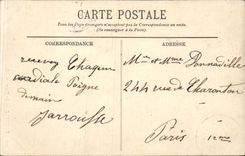 CARTE POSTALE
Tous les Pays étrangers n'acceptent pas la Correspondance au verso.
(Se renseigner à la Poste)
CORRESPONDANCE
recevez Chaqun
cordiale Poigne
demain
Jarrousse
ADRESSE
Mr et Mme Bonnadille
244 rue de Charenton
Paris 12eme